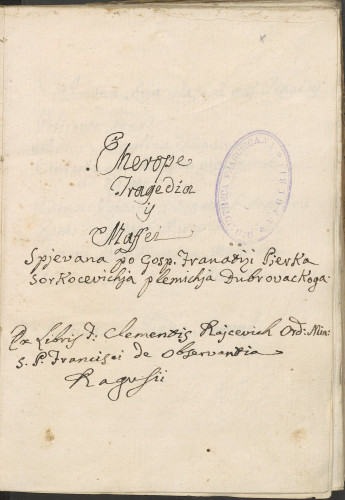 Merope
Tragedia
ij
Maffei
Spjevana po Gosp. Franatiji Pierka
Sorkocevichja plemichja Dubrovackoga.
Ex Libris F: Clementis Rajcevich Ord: Min:
S. P. Francisci de Observantia
Ragusii